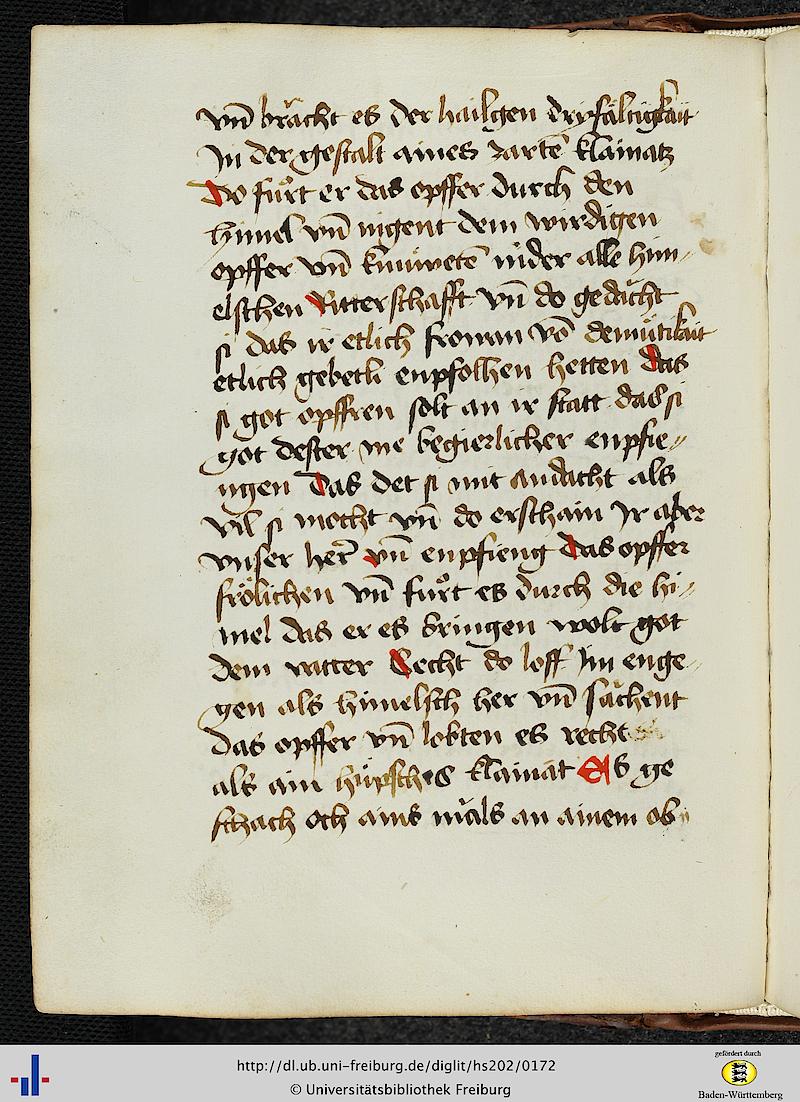 vn̄ brächt es der hailgen dryfältigkait
Jn der gestalt aines zartē klainatz
do fůrt er das opffer durch den
himel vn̄ nigent dem wirdigen
opffer vn̄ knüwetē nider alle him⸗
elschen Ritterschafft vn̄ do gedächt
si das ir etlich frowan vō demütikait
etlich gebett enpfolhen hetten das
si got opffren solt an ir statt das si
got dester me begierlicher enpfie⸗
ngen das det si mit andacht als
vil si mocht vn̄ do erschain Jr aber
vnser her̄ vn̄ enpfieng das opffer
frölichen vn̄ fůrt es durch die hi⸗
mel das er es bringen wolt got
dem vatter Recht do loff Jm enge⸗
gen als himelsch her vn̄ sächent
das opffer vn̄ lobten es recht
als ain hüpsches klainat Es ge
schach och ains mäls an ainem ob
http://dl.ub.uni-freiburg.de/diglit/hs202/0172
© Universitätsbibliothek Freiburg
gefördert durch
Baden-Württemberg